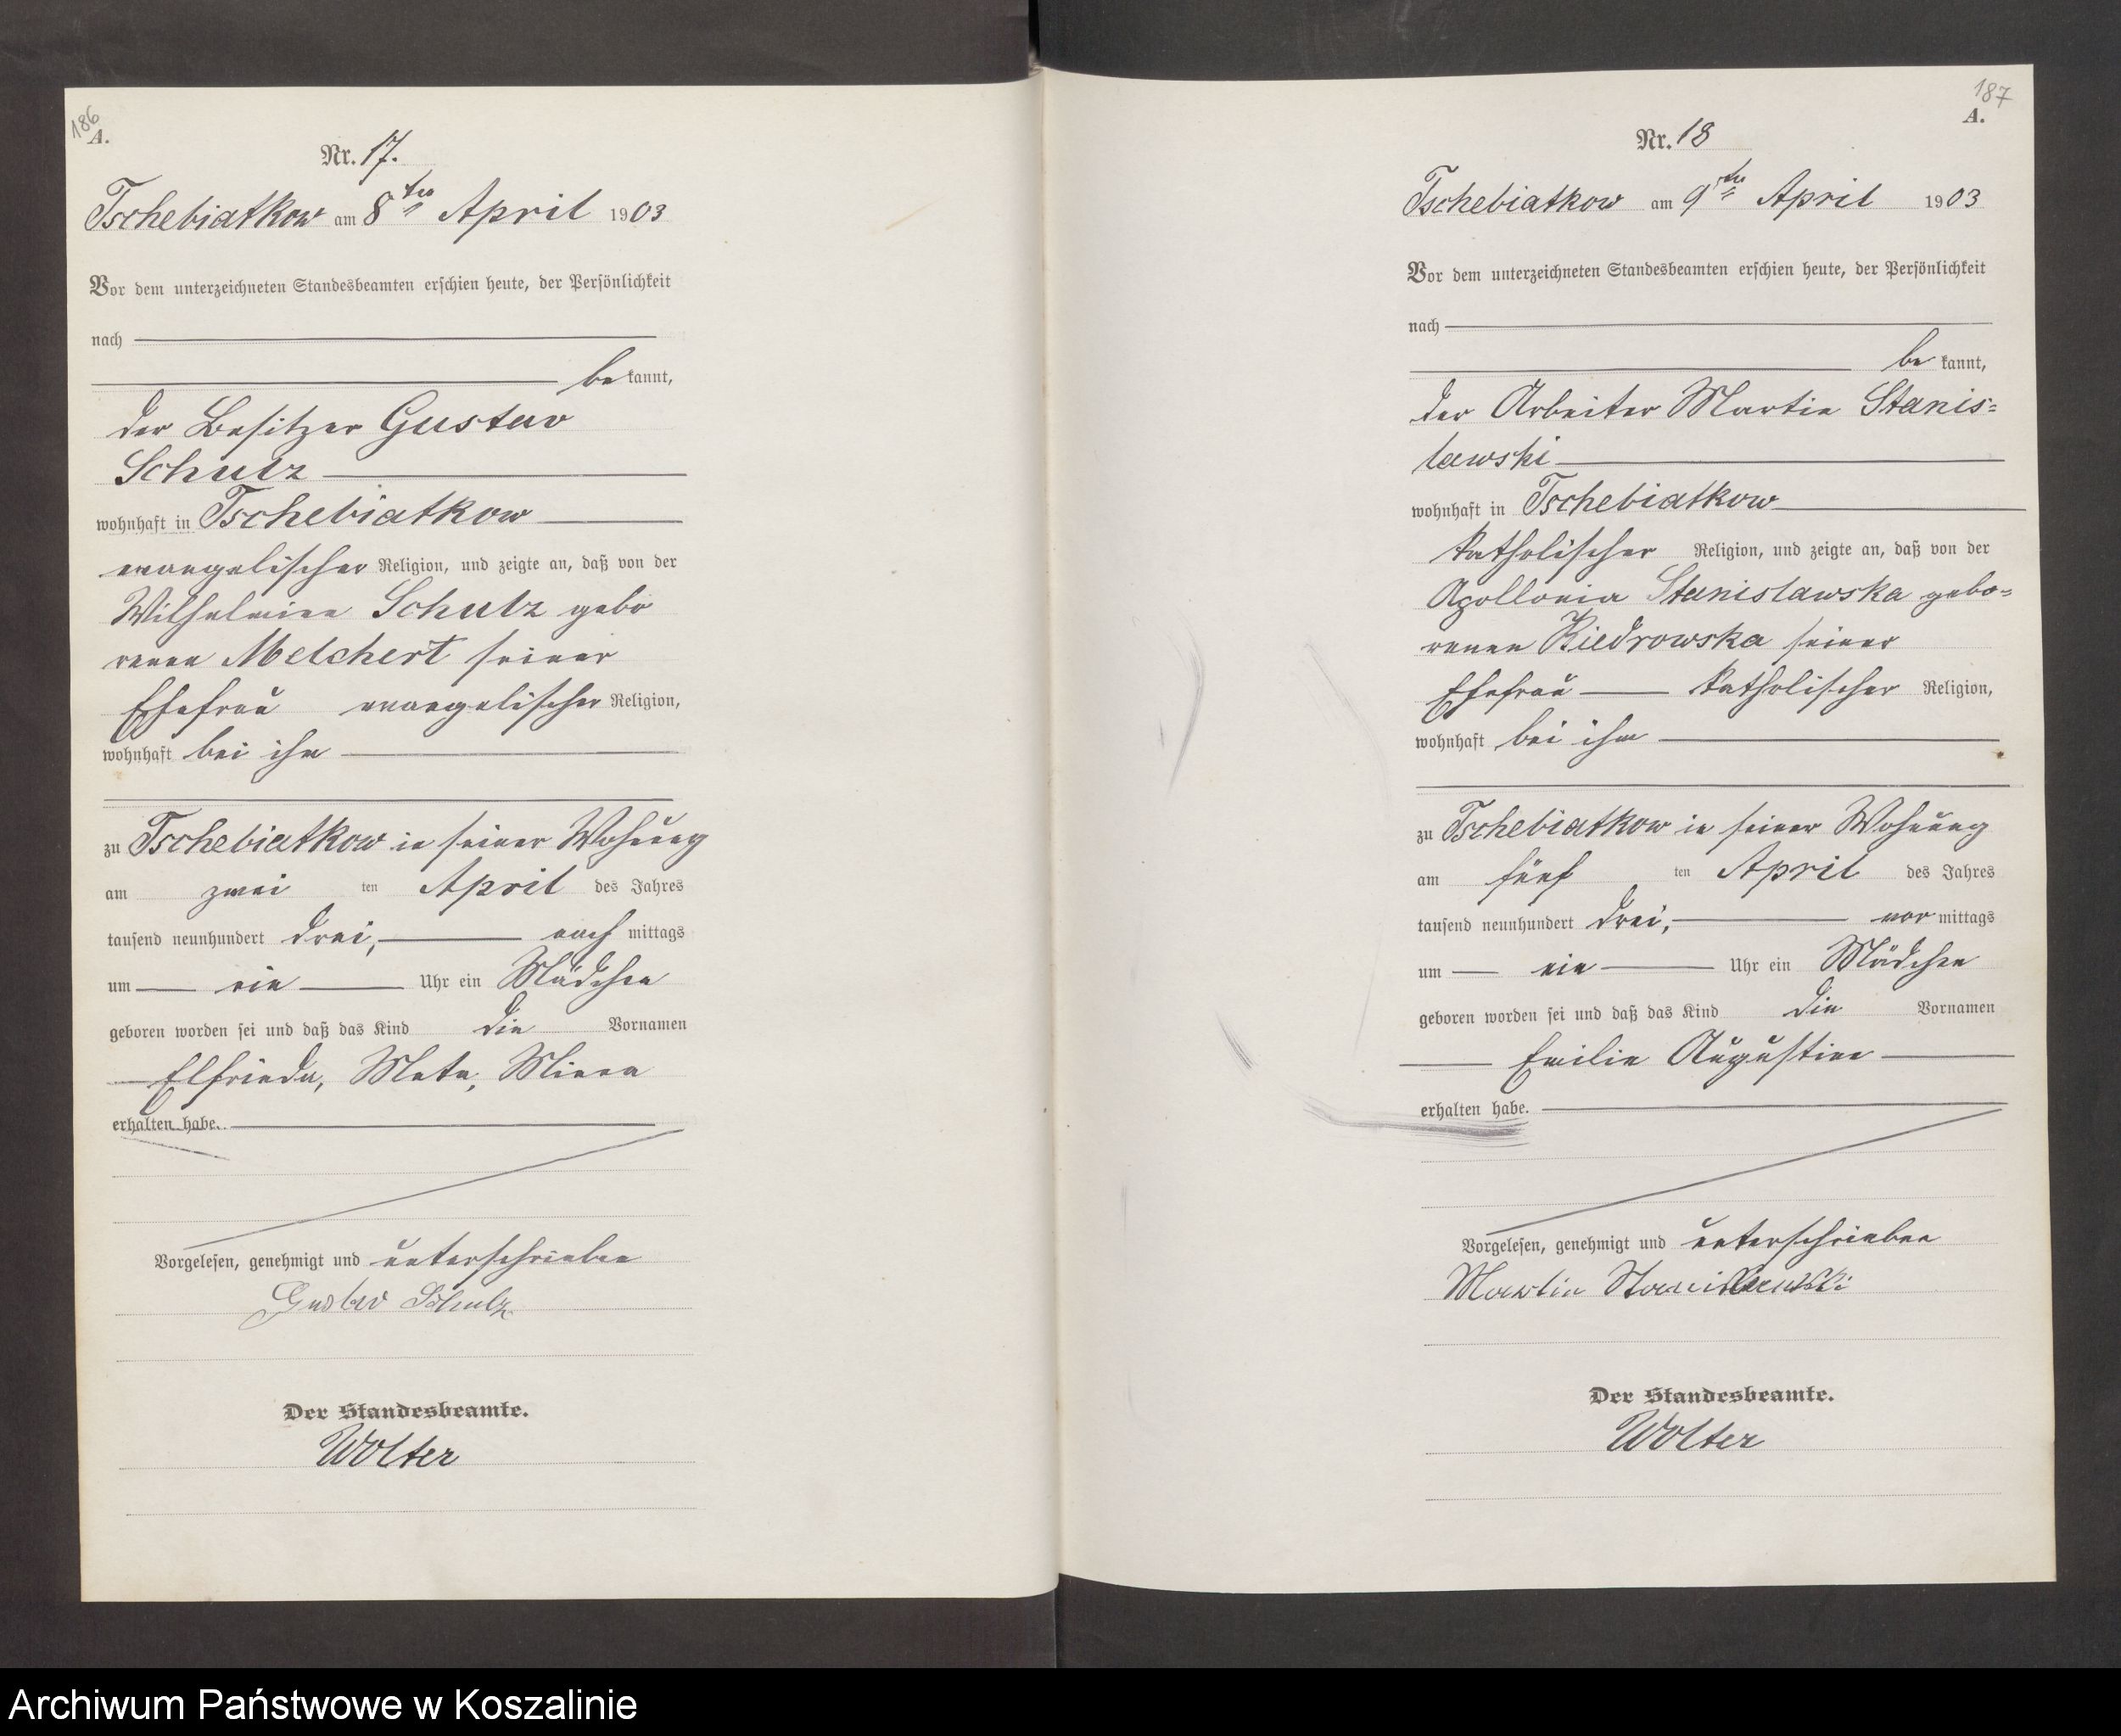 186
A.
Nr. 17.
Tschebiatkow am 8ten April 1903
Vor dem unterzeichneten Standesbeamten erschien heute, der Persönlichkeit
nach
be kannt,
der Besitzer Gustav
Schulz
wohnhaft in Tschebiatkow
evangelischer Religion, und zeigte an, daß von der
Wilhelmine Schulz gebo
renen Melchert seiner
Ehefrau evangelischer Religion,
wohnhaft bei ihm
zu Tschebiatkow in seiner Wohnung
am zwei ten April des Jahres
tausend neunhundert drei, nach mittags
um ein Uhr ein Mädchen
geboren worden sei und daß das Kind die Vornamen
Elfrieda, Meta, Minna
erhalten habe.
Vorgelesen, genehmigt und unterschrieben
Gustav Schulz
Der Standesbeamte.
Wolter
187
A.
Nr. 18
Tschebiatkow am 9ten April 1903
Vor dem unterzeichneten Standesbeamten erschien heute, der Persönlichkeit
nach
be kannt,
der Arbeiter Martin Stanis=
lawski
wohnhaft in Tschebiatkow
katholischer Religion, und zeigte an, daß von der
Apollonia Stanislawska gebo=
renen Kiedrowska seiner
Ehefrau katholischer Religion,
wohnhaft bei ihm
zu Tschebiatkow in seiner Wohnung
am fünf ten April des Jahres
tausend neunhundert drei, vor mittags
um ein Uhr ein Mädchen
geboren worden sei und daß das Kind die Vornamen
Emilie Augustine
erhalten habe.
Vorgelesen, genehmigt und unterschrieben
Martin Stanislawski
Der Standesbeamte.
Wolter
Archiwum Państwowe w Koszalinie